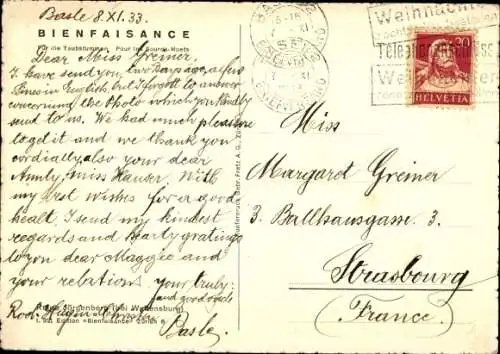 Basle 8.XI.33.
BIENFAISANCE
Für die Taubstummen. Pour les Sourds-Muets
Dear Miss Greiner.
I have send you, two days ago, a few
lines in English, but I forgot to answer
concerning the Photo which you kindly
send to us. We had much pleasure
to get it and we thank you
cordially, also your dear
Aunty, Miss Hauser. With
my best wishes for a good
healt. I send my kindest
regards and hearty
to you dear Maggie and
your relations. Yours truly:
and good
Rod.
Basle.
(bei Waltensburg)
Edition «Bienfaisance»
BASEL
Weihnachts
Telephon
Weihnachten
20
HELVETIA
Miss
Margaret Greiner
3. Ballhausgasse. 3.
Strasbourg
(France.)